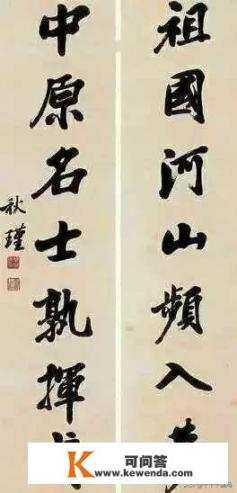 祖國河山頻入
中原名士孰揮
秋瑾
K 可问答
www.kewenda.com